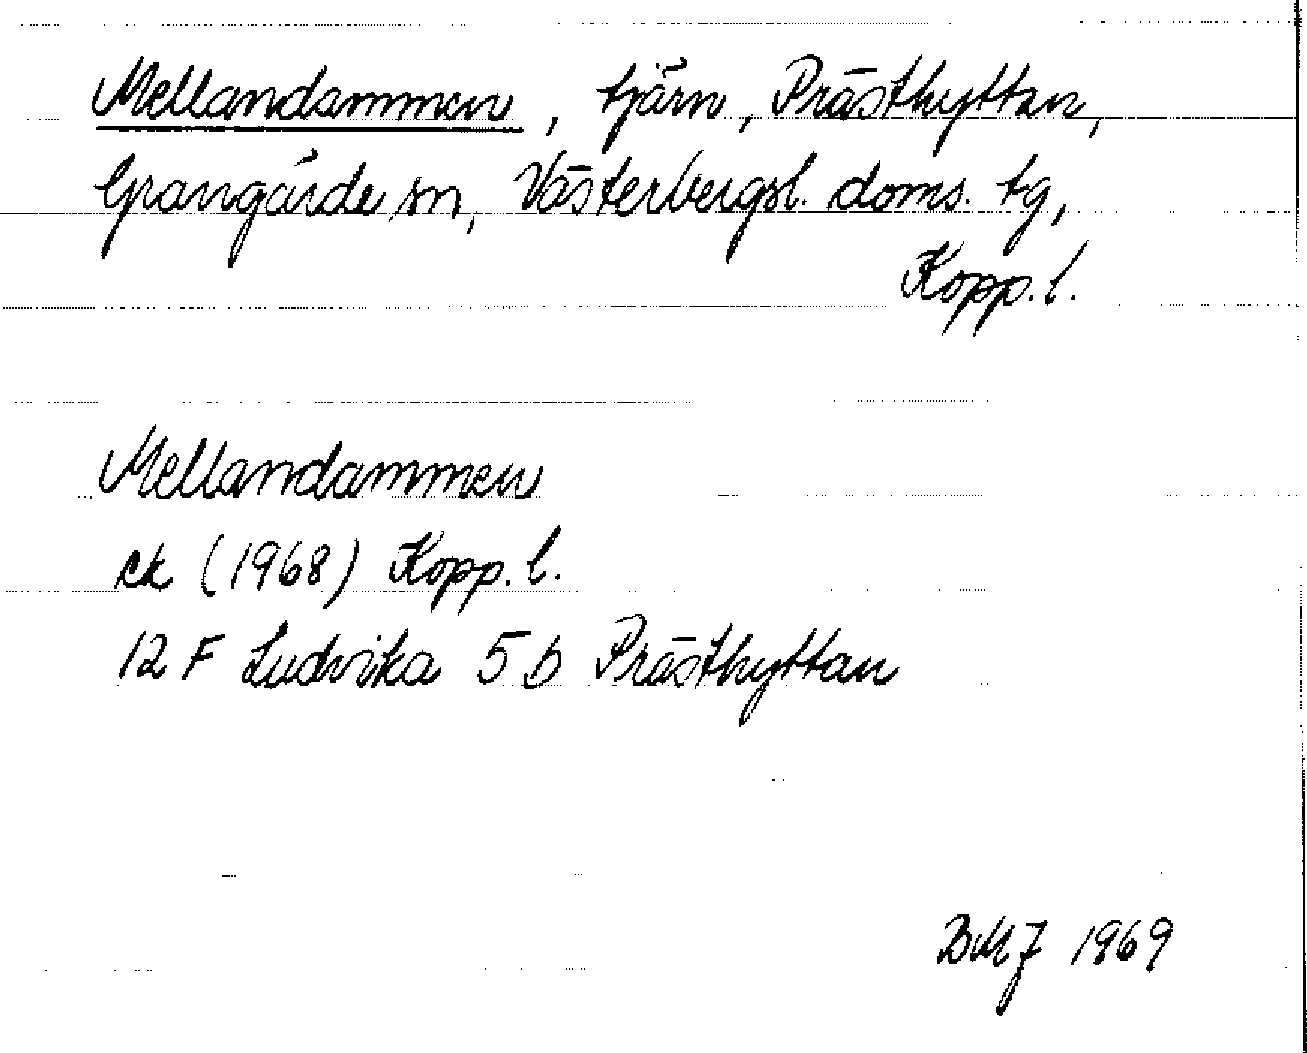 Mellandammen, tjärn, Prästhyttan,
Grangärde sn, Västerbergsl. doms. tg,
Kopp. l.
Mellandammen
ek (1968) Kopp. l.
12 F Ludvika 5 b Prästhyttan
BMJ 1969